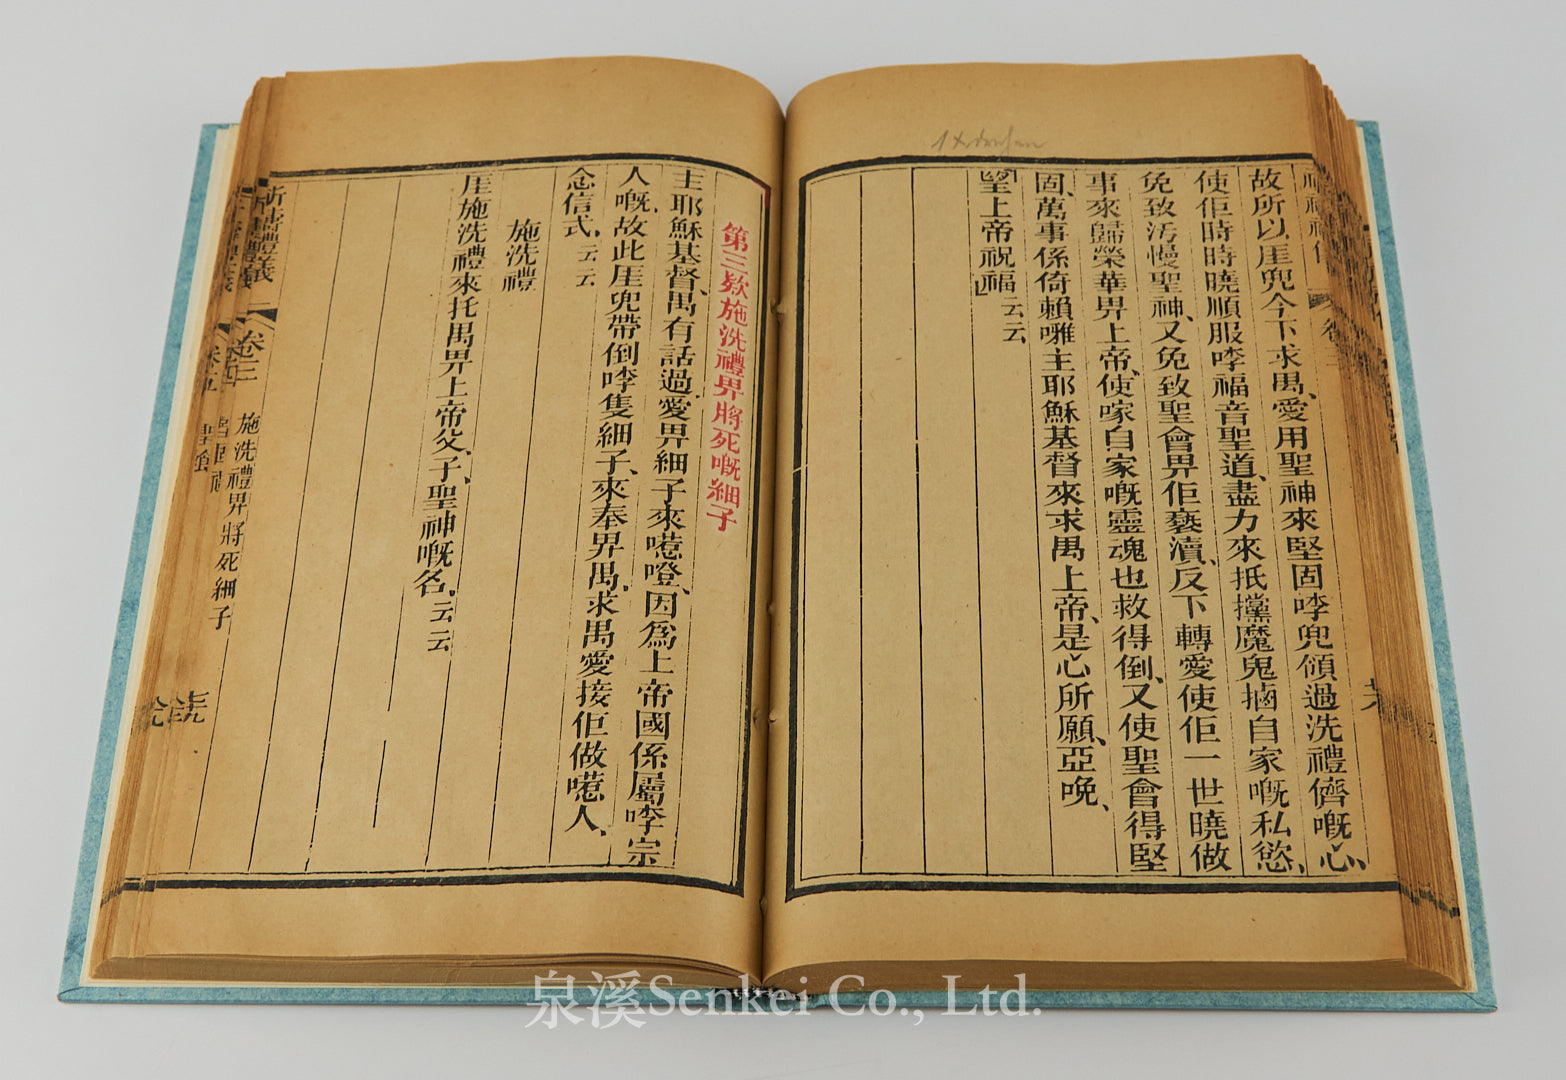 故所以厓兜今下求禺、愛用聖神來堅固哖兜傾過洗禮儕嘅心、
使佢時時曉順服哖福音聖道、盡力來抵攩魔鬼㨢自家嘅私慾、
免致汚慢聖神、又免致聖會畀佢褻瀆、反下轉愛使佢一世曉做
事來歸榮華畀上帝、使㗎自家嘅靈魂也救得倒、又使聖會得堅
固、萬事係倚賴㘄主耶穌基督來求禺上帝、是心所願、亞𠵽、
「望上帝祝福」云云
第三欵施洗禮畀將死嘅細子
主耶穌基督禺有話過、愛畀細子來㗒嶝、因爲上帝國係屬哖宗
人嘅、故此厓兜帶倒哖隻細子、來奉畀禺、求禺愛接佢做㗒人、
念信式、云云
施洗禮
厓施洗禮來托禺畀上帝父、子、聖神嘅名、云云
卷三
施洗禮畀將死細子
泉溪Senkei Co., Ltd.